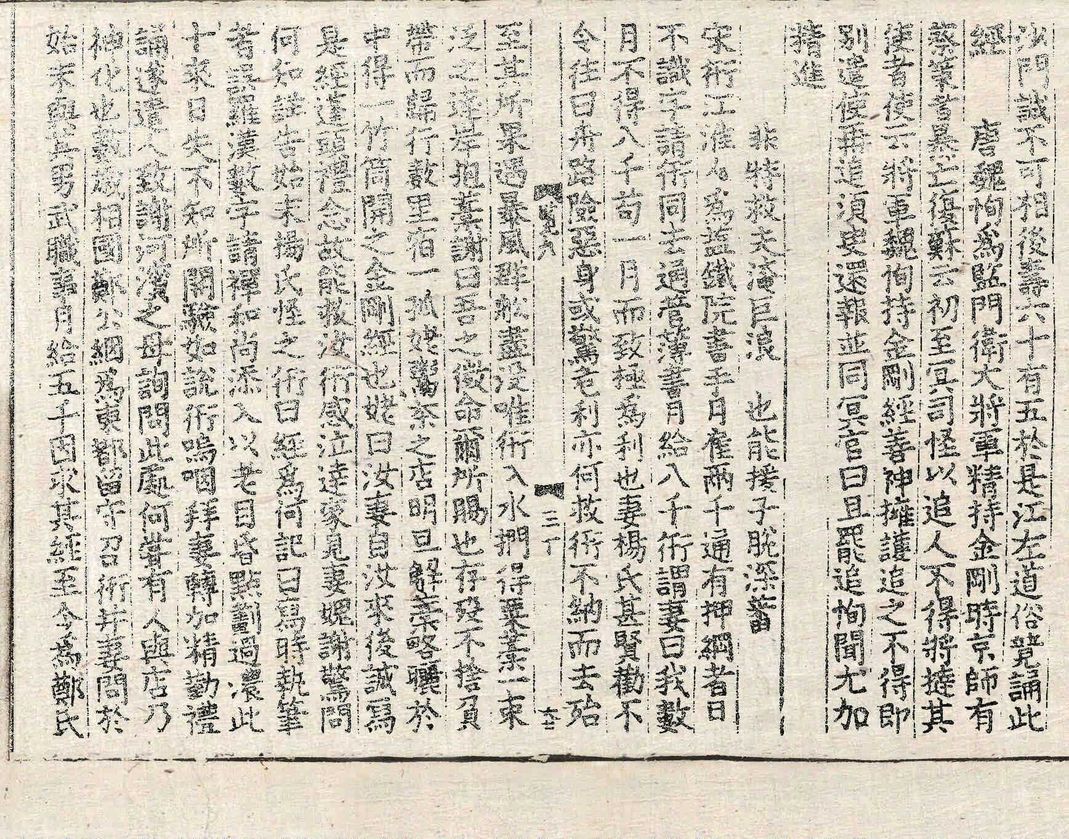 沙門誠不可相後壽六十有五於是江左道俗競誦此
經　　唐魏恂爲監門衛大將軍精持金剛時京師有
蔡策者暴亡復蘇云初至冥司怪以追人不得將撻其
使者使云將軍魏恂持金剛經善神擁護追之不得即
別遣使再追須臾還報並同冥官曰且罷追恂聞尤加
精進
非特救夫淹巨浪　也能援子脫深蕃
宋衎江淮人爲盬鐵院書手月雇兩千通有押綱者曰
不識字請衎同去通管簿書月給八千衎謂妻曰我數
月不得八千苟一月而致極爲利也妻楊氏甚賢勸不
令往曰舟路險惡身或驚危利亦何救衎不納而去殆
三丁
至其所果遇暴風群船盡没唯衎入水捫得粟藁一束
泛之達岸抱藁謝曰吾之微命爾所賜也存殁不捨負
帶而歸行數里宿一孤姥鬻茶之店明旦解藁略曬於
中得一竹筒開之金剛經也姥曰汝妻自汝來後誠寫
是經蓬頭禮念故能救汝衎感泣達家見妻媿謝驚問
何知詳告始末揚氏怪之衎曰經爲何記曰寫時執筆
者誤羅漢數字請禪和尚添入以老目昏點劃過濃此
十來日失不知所開驗如說衎嗚咽拜妻轉加精勤禮
誦遂遣人致謝河濱之母詢問此處何嘗有人與店乃
神化也數歲相國鄭公絪爲東都留守召衎并妻問於
始末與其男武職事月給五千因求其經至今爲鄭氏